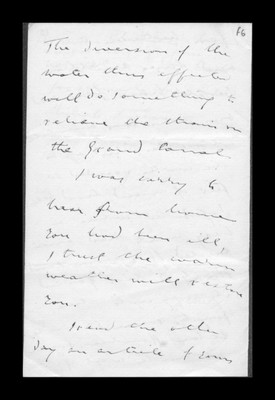 66
The diversion of the
water thus effected
will do something to
relieve the strain on
the Grand Canal.
I was sorry to
hear from home
you had been ill,
I trust the warm
weather will restore
you.
I read the other
day an article of yours